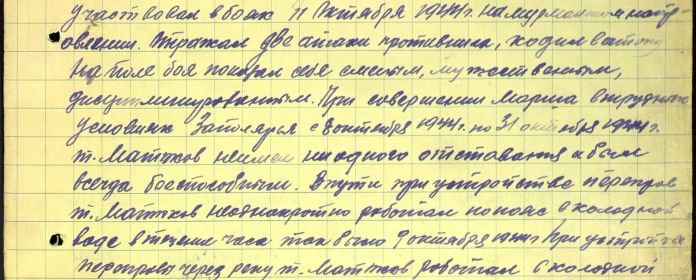 участвовал в боях 11 октября 1944г. на мурманском напр-
овлении. Отражал две атаки противника, ходил в атаку
На поле боя показал себя смелым, мужественным,
дисциплинированным. При совершении марша в трудных
условиях Заполярья с 8 октября 1944г. по 31 октября 1944г.
т. Матюков не имел ни одного отставания и был
всегда боеспособным. В пути при устройстве переправ
т. Матюков неоднократно работал по пояс в холодной
воде в течении часа так было 9 октября 1944г При устройстве
переправы через реку т. Матюков работал в холодной